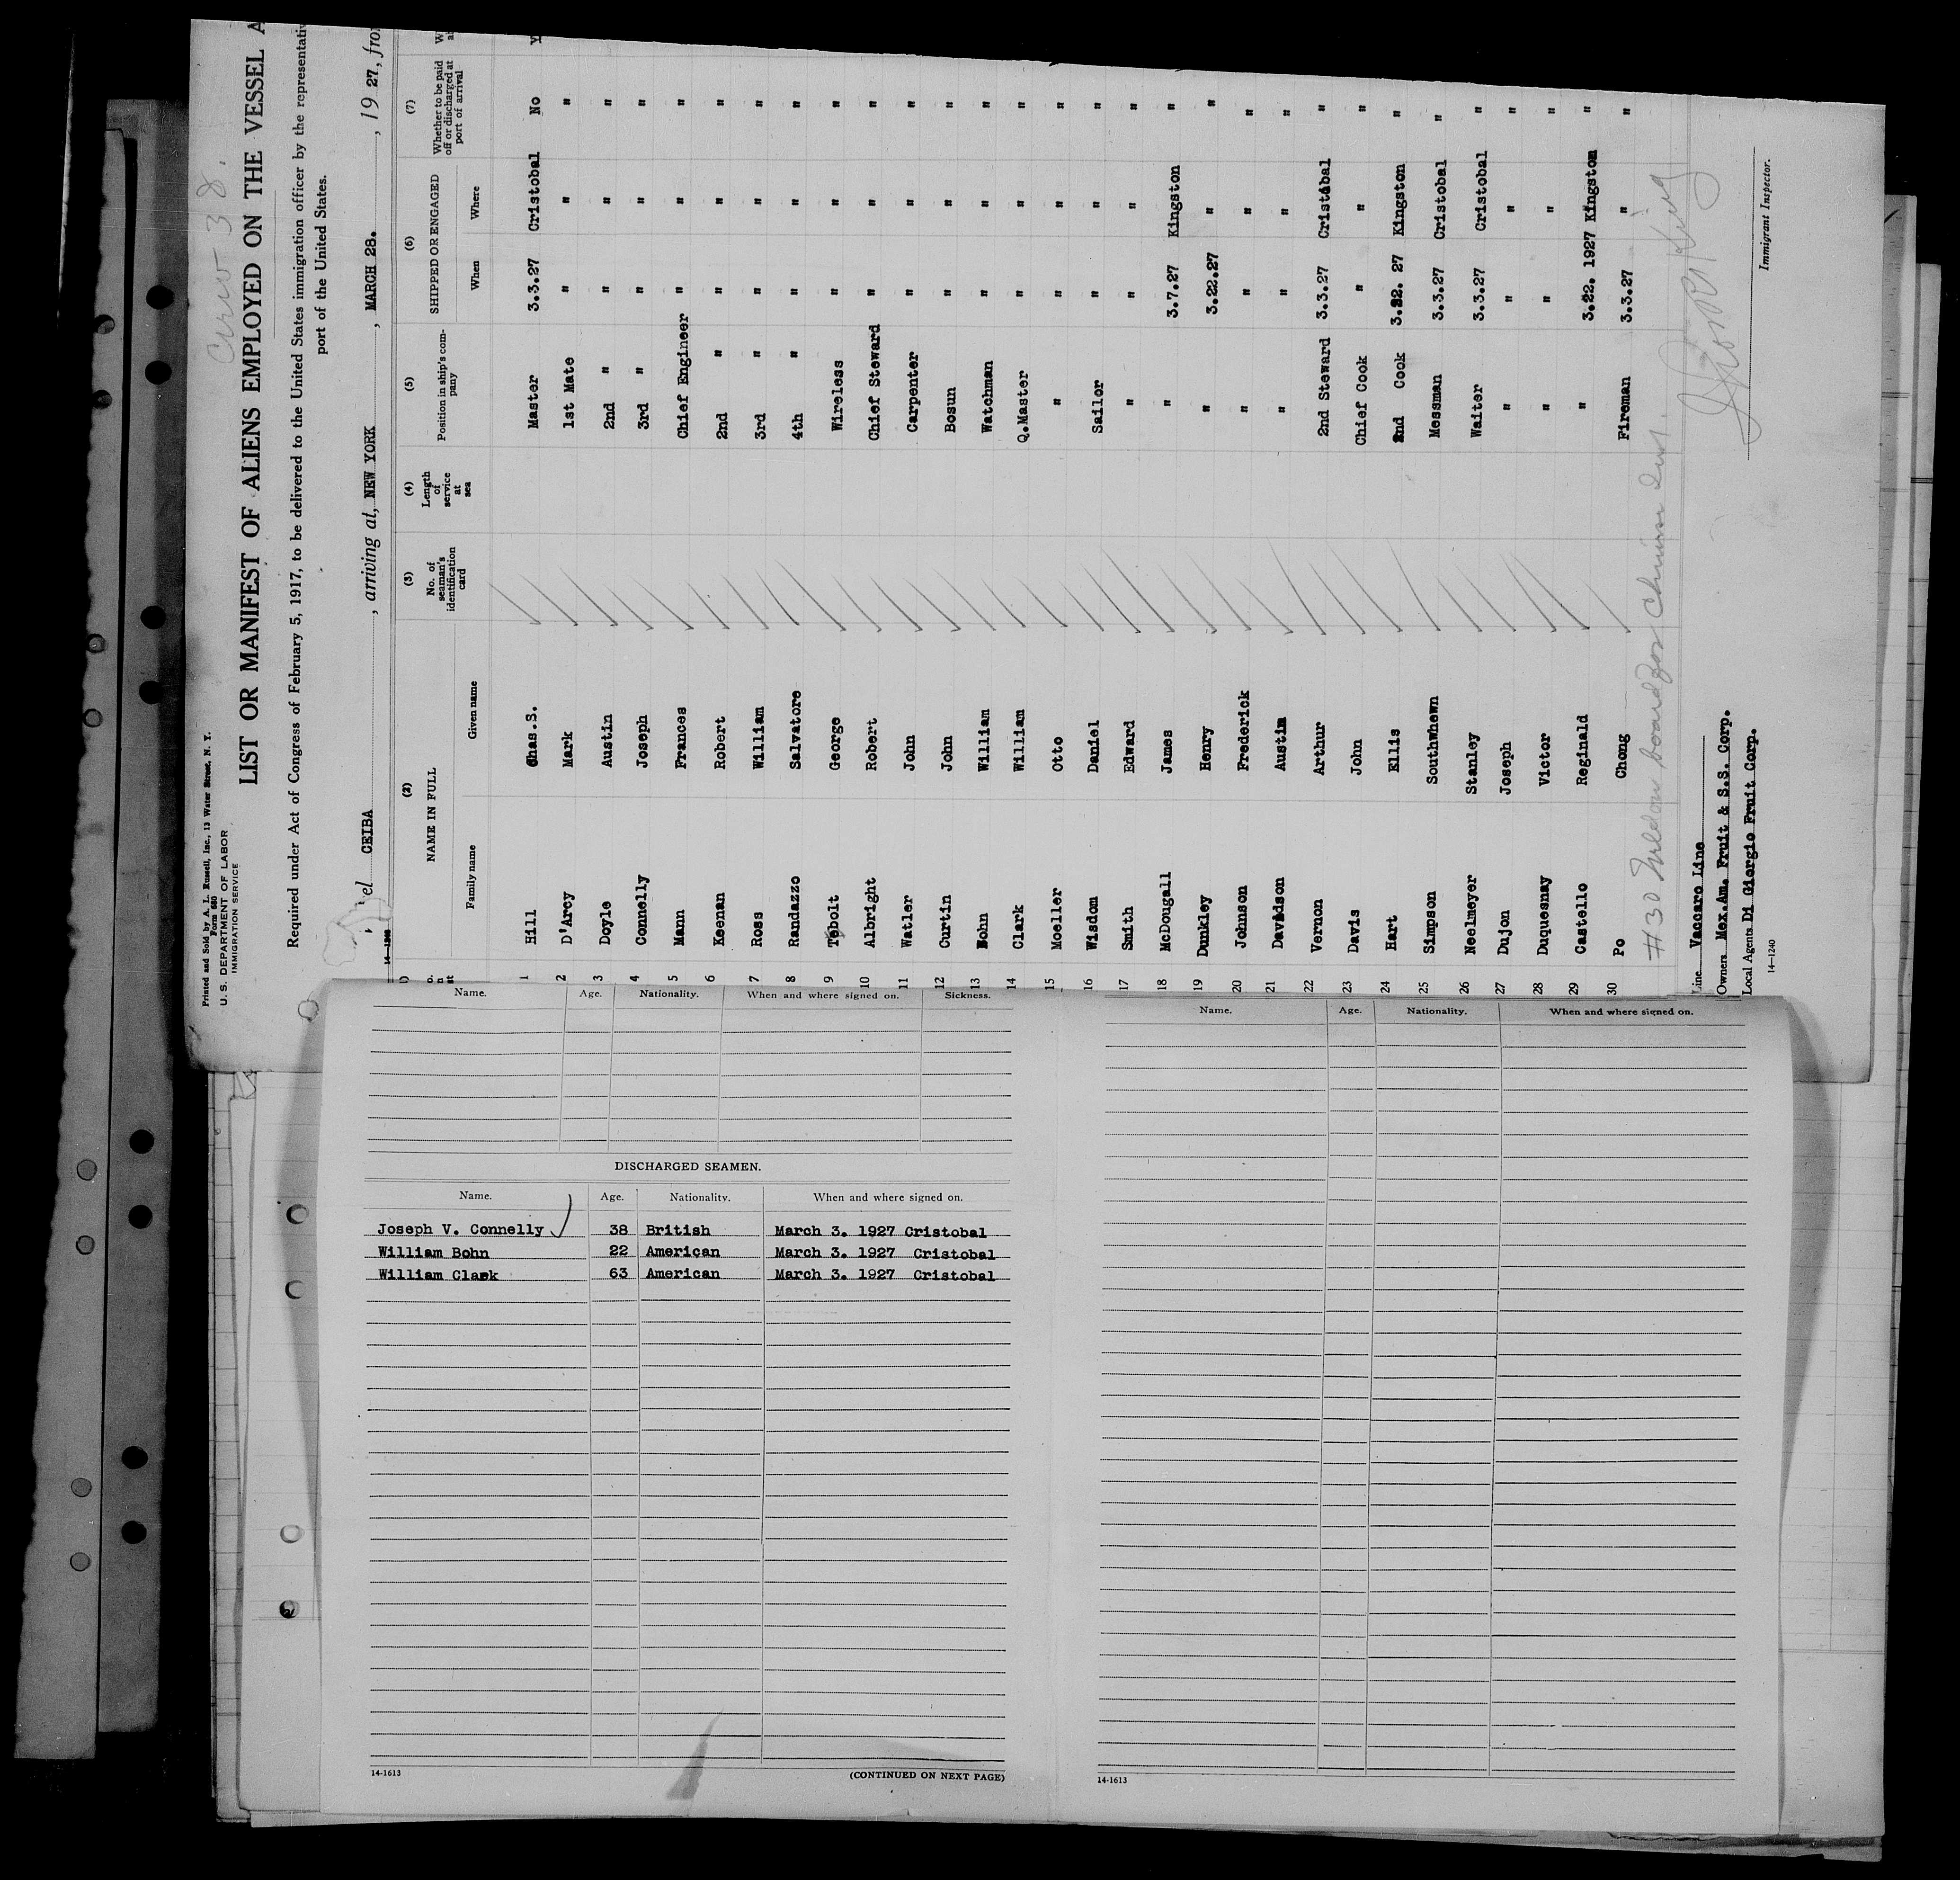 Crew 38.
Printed and Sold by A. L. Russell, Inc., 13 Water Street, N. Y.
Form 680
U. S. DEPARTMENT OF LABOR
IMMIGRATION SERVICE
LIST OR MANIFEST OF ALIENS EMPLOYED ON THE VESSEL A
Required under Act of Congress of February 5, 1917, to be delivered to the United States immigration officer by the representativ
port of the United States.
el CEIBA, arriving at, NEW YORK, MARCH 28., 19 27, fro
(2) (3) (4) (5) (6) (7)
NAME IN FULL No. of seaman's identification card Length of service at sea Position in ship's company SHIPPED OR ENGAGED Whether to be paid off or discharged at port of arrival
Family name Given name When Where
1 Hill Chas.S. Master 3.3.27 Cristobal No
2 D'Arcy Mark 1st Mate " " "
3 Doyle Austin 2nd " " " "
4 Connelly Joseph 3rd " " " "
5 Mann Frances Chief Engineer " " "
6 Keenan Robert 2nd " " " "
7 Ross William 3rd " " " "
8 Randazzo Salvatore 4th " " " "
9 Tebolt George Wireless " " "
10 Albright Robert Chief Steward " " "
11 Watler John Carpenter " " "
12 Curtin John Bosun " " "
13 Bohn William Watchman " " "
14 Clark William Q.Master " " "
15 Moeller Otto " " " "
16 Wisdom Daniel Sailor " " "
17 Smith Edward " " " "
18 McDougall James " 3.7.27 Kingston "
19 Dunkley Henry " 3.22.27 " "
20 Johnson Frederick " " " "
21 Davidson Austin " " " "
22 Vernon Arthur 2nd Steward 3.3.27 Cristobal "
23 Davis John Chief Cook " " "
24 Hart Ellis 2nd Cook 3.22. 27 Kingston "
25 Simpson Southwhewn Messman 3.3.27 Cristobal "
26 Neelmeyer Stanley Waiter 3.3.27 Cristobal "
27 Dujon Joseph " " " "
28 Duquesnay Victor " " " "
29 Castello Reginald " 3.22. 1927 Kingston "
30 Po Chong Fireman 3.3.27 " "
#30
Line Vaccaro Line
Owners Mex.Am. Fruit & S.S. Corp.
Local Agents Di Giorgio Fruit Corp.
Immigrant Inspector.
14—1240
Name. Age. Nationality. When and where signed on. Sickness.
DISCHARGED SEAMEN.
Name. Age. Nationality. When and where signed on.
Joseph V. Connelly 38 British March 3. 1927 Cristobal
William Bohn 22 American March 3. 1927 Cristobal
William Clark 63 American March 3. 1927 Cristobal
14-1613
(CONTINUED ON NEXT PAGE)
Name. Age. Nationality. When and where signed on.
14-1613